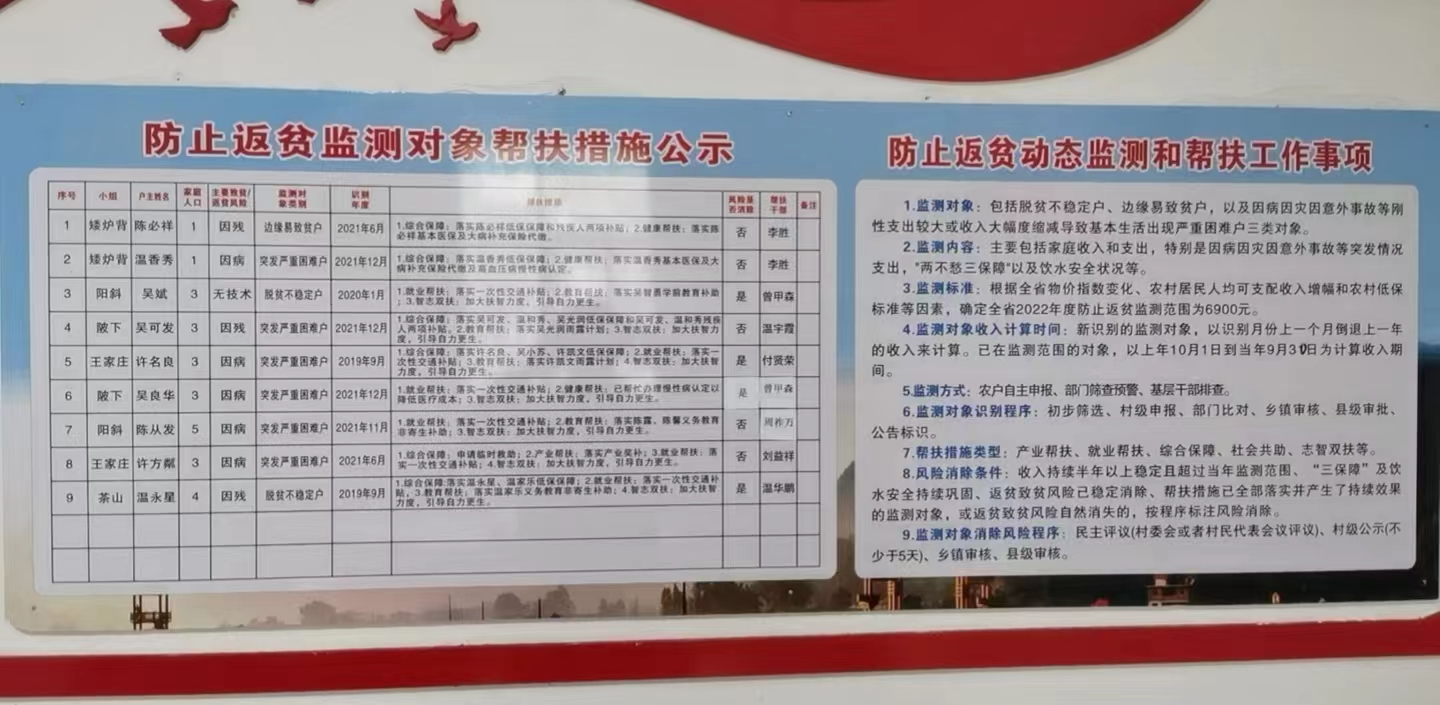 防止返贫监测对象帮扶措施公示
序号 小组 户主姓名 家庭人口 主要致贫/返贫风险 监测对象类别 识别年度 帮扶措施 风险是否消除 帮扶干部 备注
1 矮炉背 陈必祥 1 因残 边缘易致贫户 2021年6月 1.综合保障：落实陈必祥低保保障和残疾人两项补贴；2.健康帮扶：落实陈必祥基本医保及大病补充保险代缴。 否 李胜
2 矮炉背 温香秀 1 因病 突发严重困难户 2021年12月 1.综合保障：落实温香秀低保保障；2.健康帮扶：落实温香秀基本医保及大病补充保险代缴及高血压病慢性病认定。 否 李胜
3 阳斜 吴斌 3 无技术 脱贫不稳定户 2020年1月 1.就业帮扶：落实一次性交通补贴；2.教育帮扶：落实吴智勇学前教育补助；3.智志双扶：加大扶智力度，引导自力更生。 是 曾甲森
4 陂下 吴可发 3 因残 突发严重困难户 2021年12月 1.综合保障：落实吴可发、温和秀、吴光润低保保障和吴可发、温和秀残疾人两项补贴。2.教育帮扶：落实吴光润雨露计划；3.智志双扶：加大扶智力度，引导自力更生。 否 温宇霞
5 王家庄 许名良 3 因病 突发严重困难户 2019年9月 1.综合保障：落实许名良、吴小苏、许凯文低保保障；2.就业帮扶：落实一次性交通补贴；3.教育帮扶：落实许凯文雨露计划；4.智志双扶：加大扶智力度，引导自力更生。 是 付贤荣
6 陂下 吴良华 3 因病 突发严重困难户 2021年12月 1.就业帮扶：落实一次性交通补贴；2.健康帮扶：已帮忙办理慢性病认定以降低医疗成本；3.智志双扶：加大扶智力度，引导自力更生。 是 曾甲森
7 阳斜 陈从发 5 因病 突发严重困难户 2021年11月 1.就业帮扶：落实一次性交通补贴；2.教育帮扶：落实陈露、陈馨义务教育非寄生补助；3.智志双扶：加大扶智力度，引导自力更生。 否 周祚万
8 王家庄 许方粼 3 因病 突发严重困难户 2021年6月 1.综合保障：申请临时救助；2.产业帮扶：落实产业奖补；3.就业帮扶：落实一次性交通补贴；4.智志双扶：加大扶智力度，引导自力更生。 否 刘益祥
9 茶山 温永星 4 因残 脱贫不稳定户 2019年9月 1.综合保障:落实温永星、温家乐低保保障；2.就业帮扶：落实一次性交通补贴，3.教育帮扶：落实温家乐义务教育非寄生补助；4.智志双扶：加大扶智力度，引导自力更生。 是 温华鹏
防止返贫动态监测和帮扶工作事项
1.监测对象：包括脱贫不稳定户、边缘易致贫户，以及因病因灾因意外事故等刚
性支出较大或收入大幅度缩减导致基本生活出现严重困难户三类对象。
2.监测内容：主要包括家庭收入和支出，特别是因病因灾因意外事故等突发情况
支出，"两不愁三保障"以及饮水安全状况等。
3.监测标准：根据全省物价指数变化、农村居民人均可支配收入增幅和农村低保
标准等因素，确定全省2022年度防止返贫监测范围为6900元。
4.监测对象收入计算时间：新识别的监测对象，以识别月份上一个月倒退上一年
的收入来计算。已在监测范围的对象，以上年10月1日到当年9月30日为计算收入期
间。
5.监测方式：农户自主申报、部门筛查预警、基层干部排查。
6.监测对象识别程序：初步筛选、村级申报、部门比对、乡镇审核、县级审批、
公告标识。
7.帮扶措施类型：产业帮扶、就业帮扶、综合保障、社会共助、志智双扶等。
8.风险消除条件：收入持续半年以上稳定且超过当年监测范围、“三保障”及饮
水安全持续巩固、返贫致贫风险已稳定消除、帮扶措施已全部落实并产生了持续效果
的监测对象，或返贫致贫风险自然消失的，按程序标注风险消除。
9.监测对象消除风险程序：民主评议(村委会或者村民代表会议评议)、村级公示(不
少于5天)、乡镇审核、县级审核。